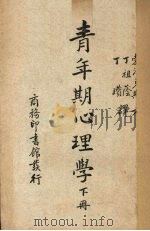 丁祖蔭譯
丁瓚
青年期心理學下冊
商務印書館發行